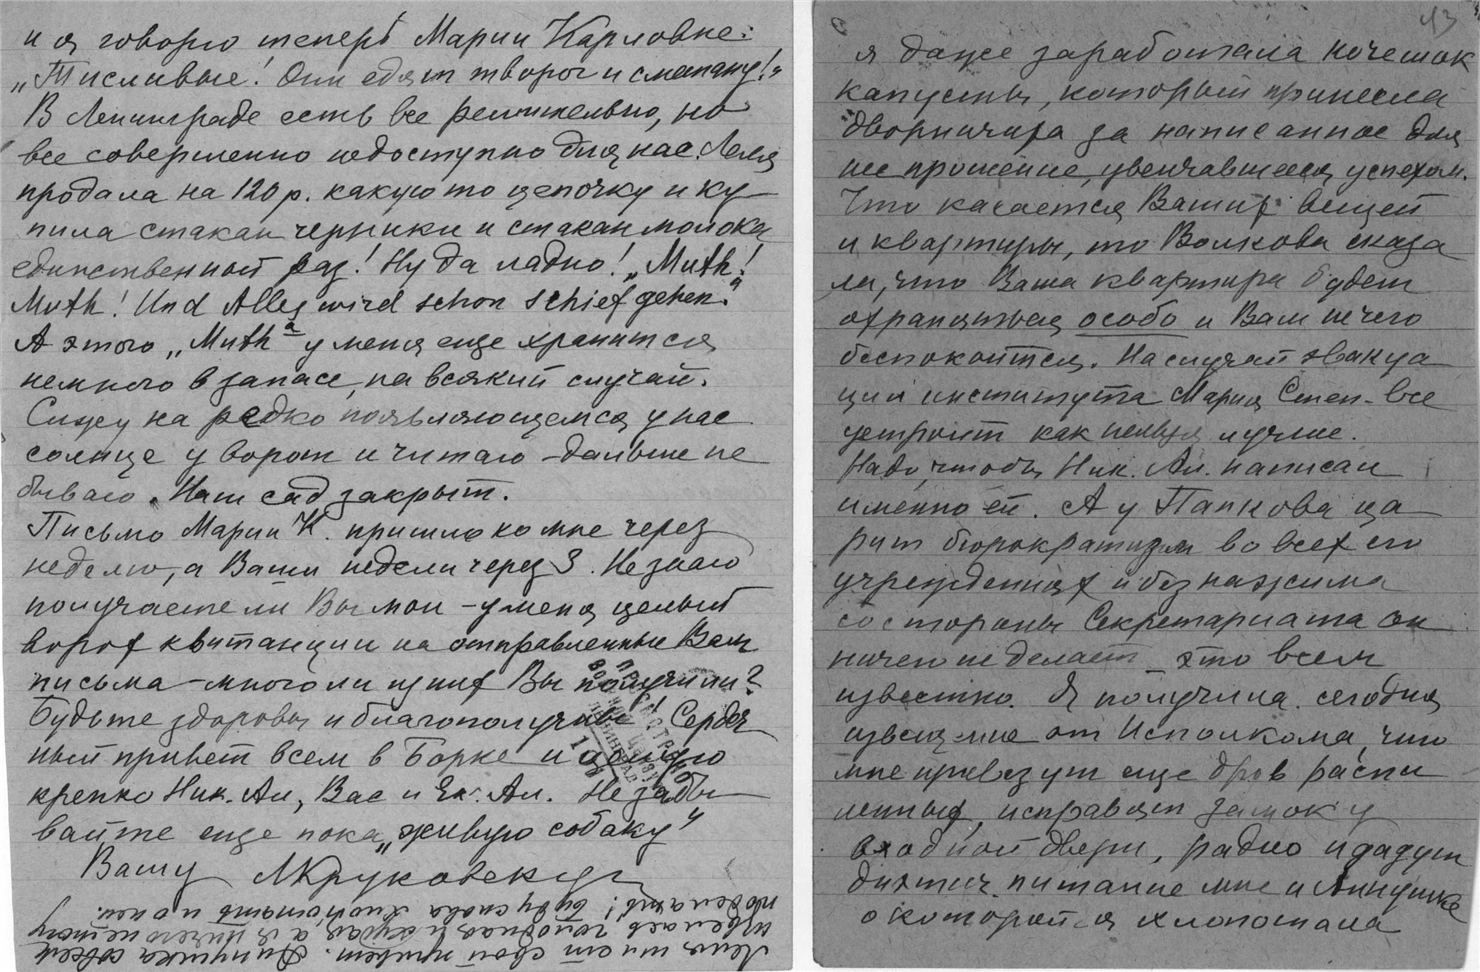 и я говорю теперь Марии Карловне:
„Счастливые! Они едят творог и сметану!“
В Ленинграде есть все решительно, но
все совершенно недоступно для нас. Леля
продала на 120 р. какую то цепочку и ку
пила стакан черники и стакан молока
единственный раз! Ну да ладно! „Muth!
Muth! Und Alles wird schon schief gehen.“
А этого „Muth“а у меня еще хранится
немного в запасе, на всякий случай.
Сижу на редко появляющемся у нас
солнце у ворот и читаю – дальше не
бываю. Наш сад закрыт.
Письмо Марии К. пришло ко мне через
неделю, а Ваши недели через 3. Не знаю
получаете ли Вы мои – у меня целый
ворох квитанции на отправленные Вам
письма – много ли из них Вы получили?
Будьте здоровы и благополучны! Сердеч
ный привет всем в Борке и
крепко Ник. Ал., Вас и Ек. Ал. Не забы
вайте еще пока „живую собаку“
Вашу МКруковскую
Леля шлет свой привет. Аннушка совсем
голодная и худая, а я ничего не могу
поделать! Буду снова хлопотать и о ней.
13
я даже заработала кочешок
капусты, который принесла
дворничиха за написанное для
нее прошение, увенчавшееся успехом.
Что касается Ваших вещей
и квартиры, то Волкова сказа
ла, что Ваша квартира будет
охраняться особо и Вам нечего
беспокоится. На случай эвакуа
ции института Мария Степ. все
устроит как нельзя лучше.
Надо, чтобы Ник. Ал. написал
именно ей. А у Папкова ца
рит бюрократизм во всех его
учреждениях и без нажима
со стороны Секретариата он
ничего не делает – это всем
известно. Я получила сегодня
извещение от Исполкома, что
мне привезут еще дров распи
ленных, исправят замок у
входной двери, радио и дадут
диэтич. питание мне и Аннушке
о которой я хлопотала